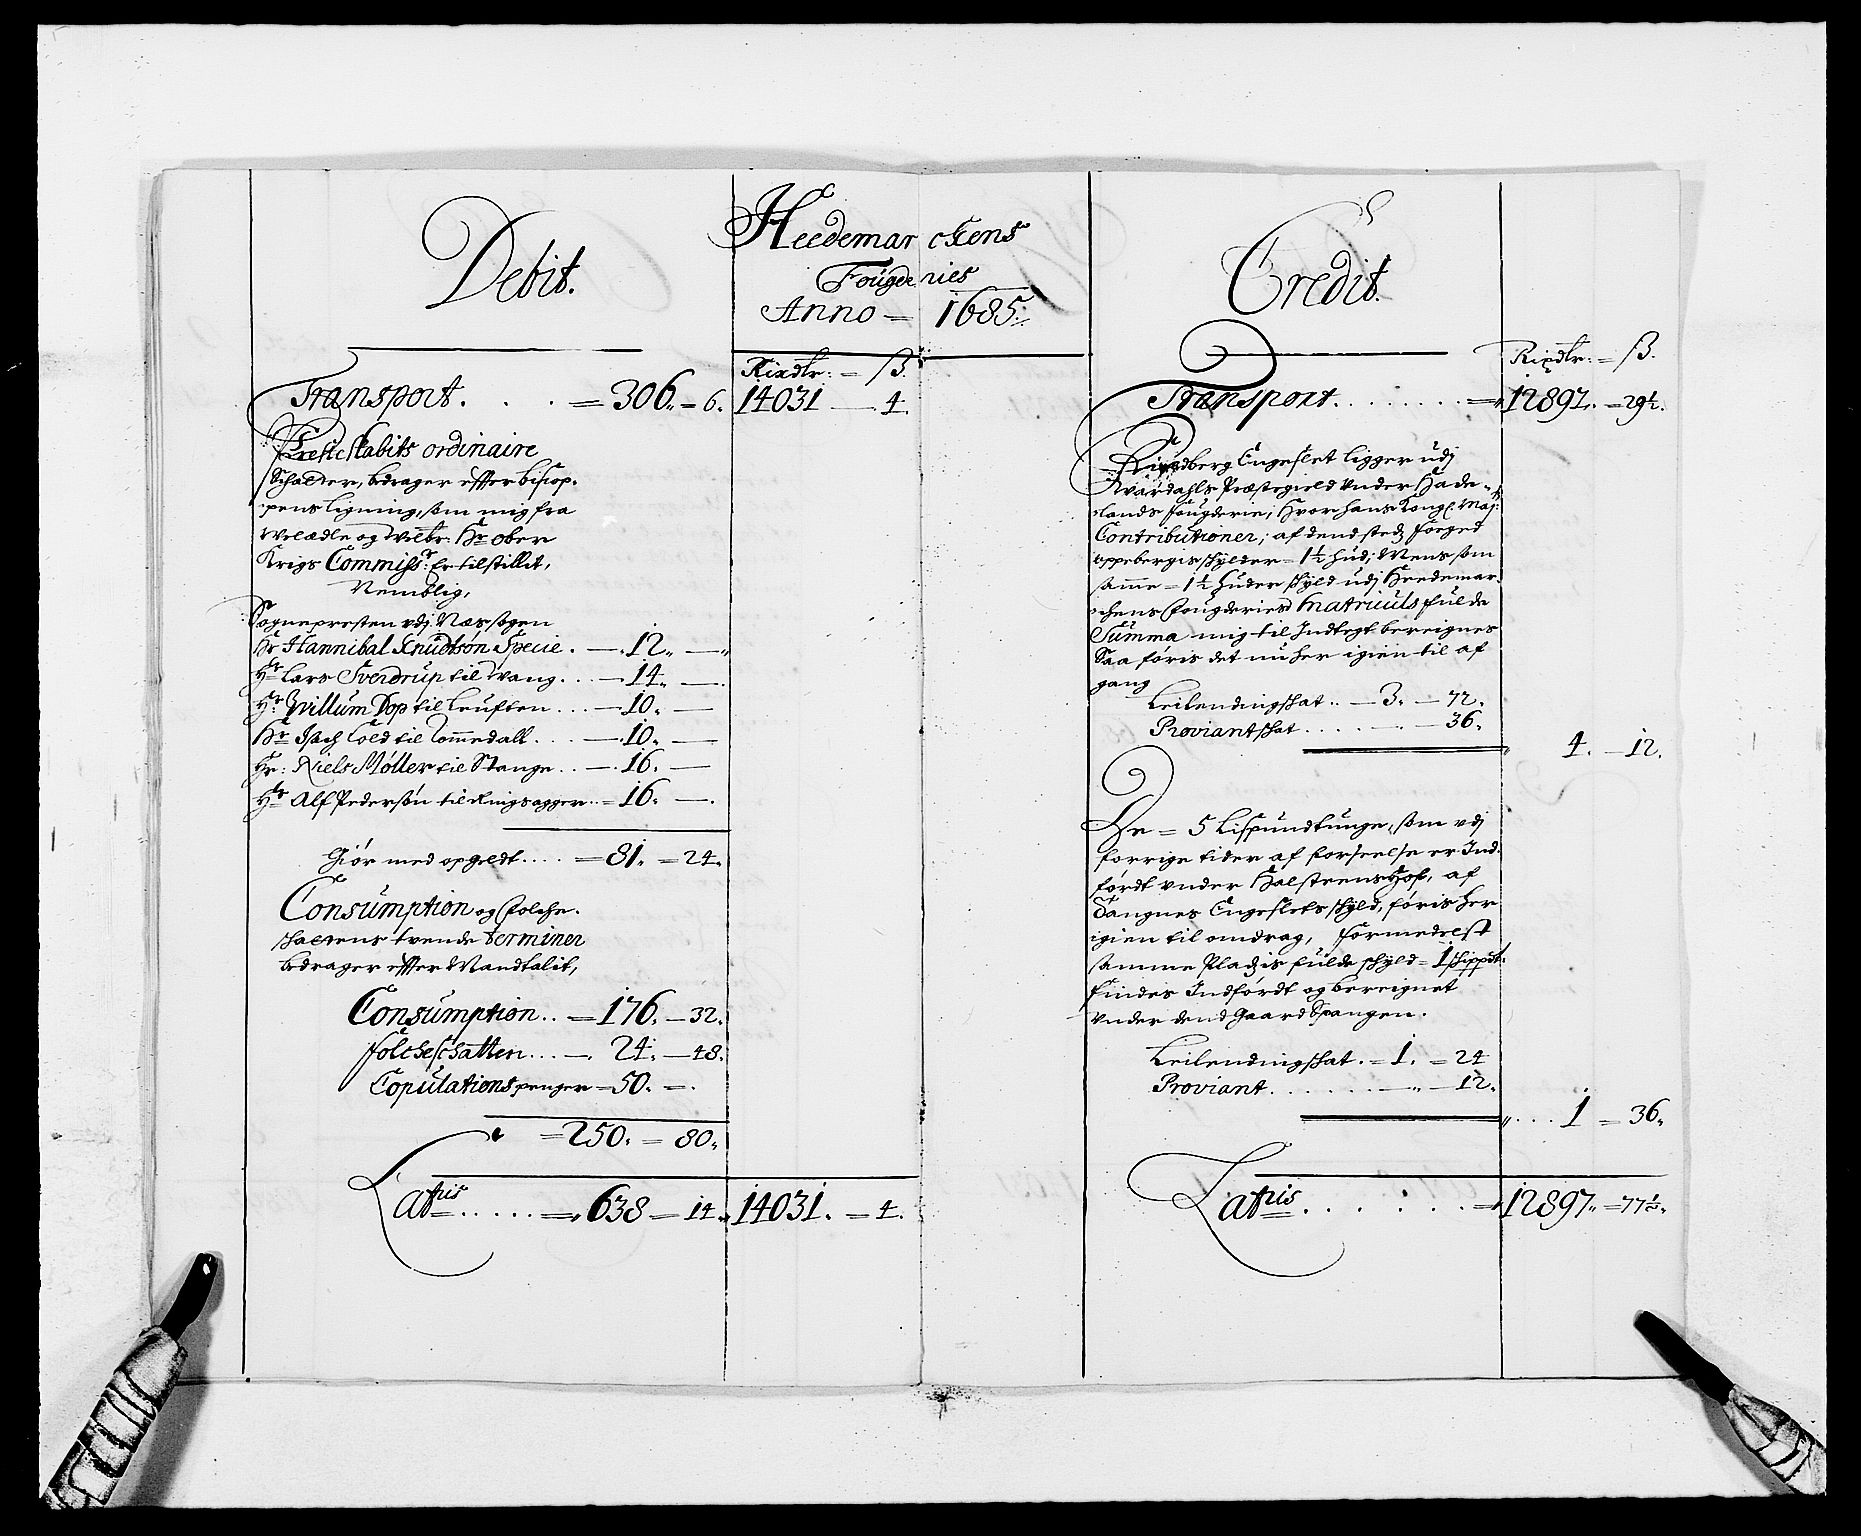 Debit.
Heedemarckens
Fougderies
Anno = 1685.
Credit.
Rixdlr: = ß.
Transport. . . . = 306. = 6. 14031 — 4.
Prestskabits ordinaire
Schatter, bedrager effter bisop-
pens ligning, som mig fra
Welædle og Welbr: Hr ober
Krigs Commisr: Er tilstillit,
Nemblig,
Sognepresten vdj Næs sogen
Hr Hannibal Knudtsøn Specie . — 12. —
Hr Lars Sverdrup til Wang . . . — 14. —
Hr Willum Dop til Leuften . . . — 10. —
Hr Isach Cold til Rommedall . . . — 10. —
Hr: Niels Møller til Stange . . — 16. —
Hr Alf Pedersøn til Ringsagger . . = 16. —.
Giør med opgeldt . . . . = 81. = 24.
Consumption og Folche-
schattens tvende Terminer
bedrager effter Mandtalit,
Consumption . . = 176. — 32.
Folcheschatten . . . — 24. — 48.
Copulations penger — 50. = .
= 250. = 80.
Latris . . . . . = 638 — 14. 14031. = 4.
Rixdlr: = ß.
Transport. . . . . . . = 12892. = 29½.
Rindberg Engeslet ligger udj
Præstegield vnder Hade-
lands Fougderie, hvor hans Kongl. Maj:
Contributioner, af dend sted
schylder = 1½ hud; Mens som
samme = 1½ huder schyld udj Heedemar-
chens Fougderies Matriculs fulde
Summa mig til Indtegt bereignes
Saa føris det nu her igien til af
gang
Leilendingschat . . — 3. — 72.
Proviantschat . . . . . . — 36.
4. — 12.
De = 5 Lispundtunge, som vdj
forrige tider af forseelse er Ind-
ført vnder Halsteens Hof, af
Engeslets schyld, føris her
igien til omdrag, formedelst
samme Pladzis fulde schyld = 1 schippdt:
findes Indførdt og bereignet
vnder dend Gaard Spangen.
Leilendingschat . = 1. = 24
Proviant . . . . . . . — 12.
. . . 1 = 36.
Latris . . . . . . = 12897. = 77½.